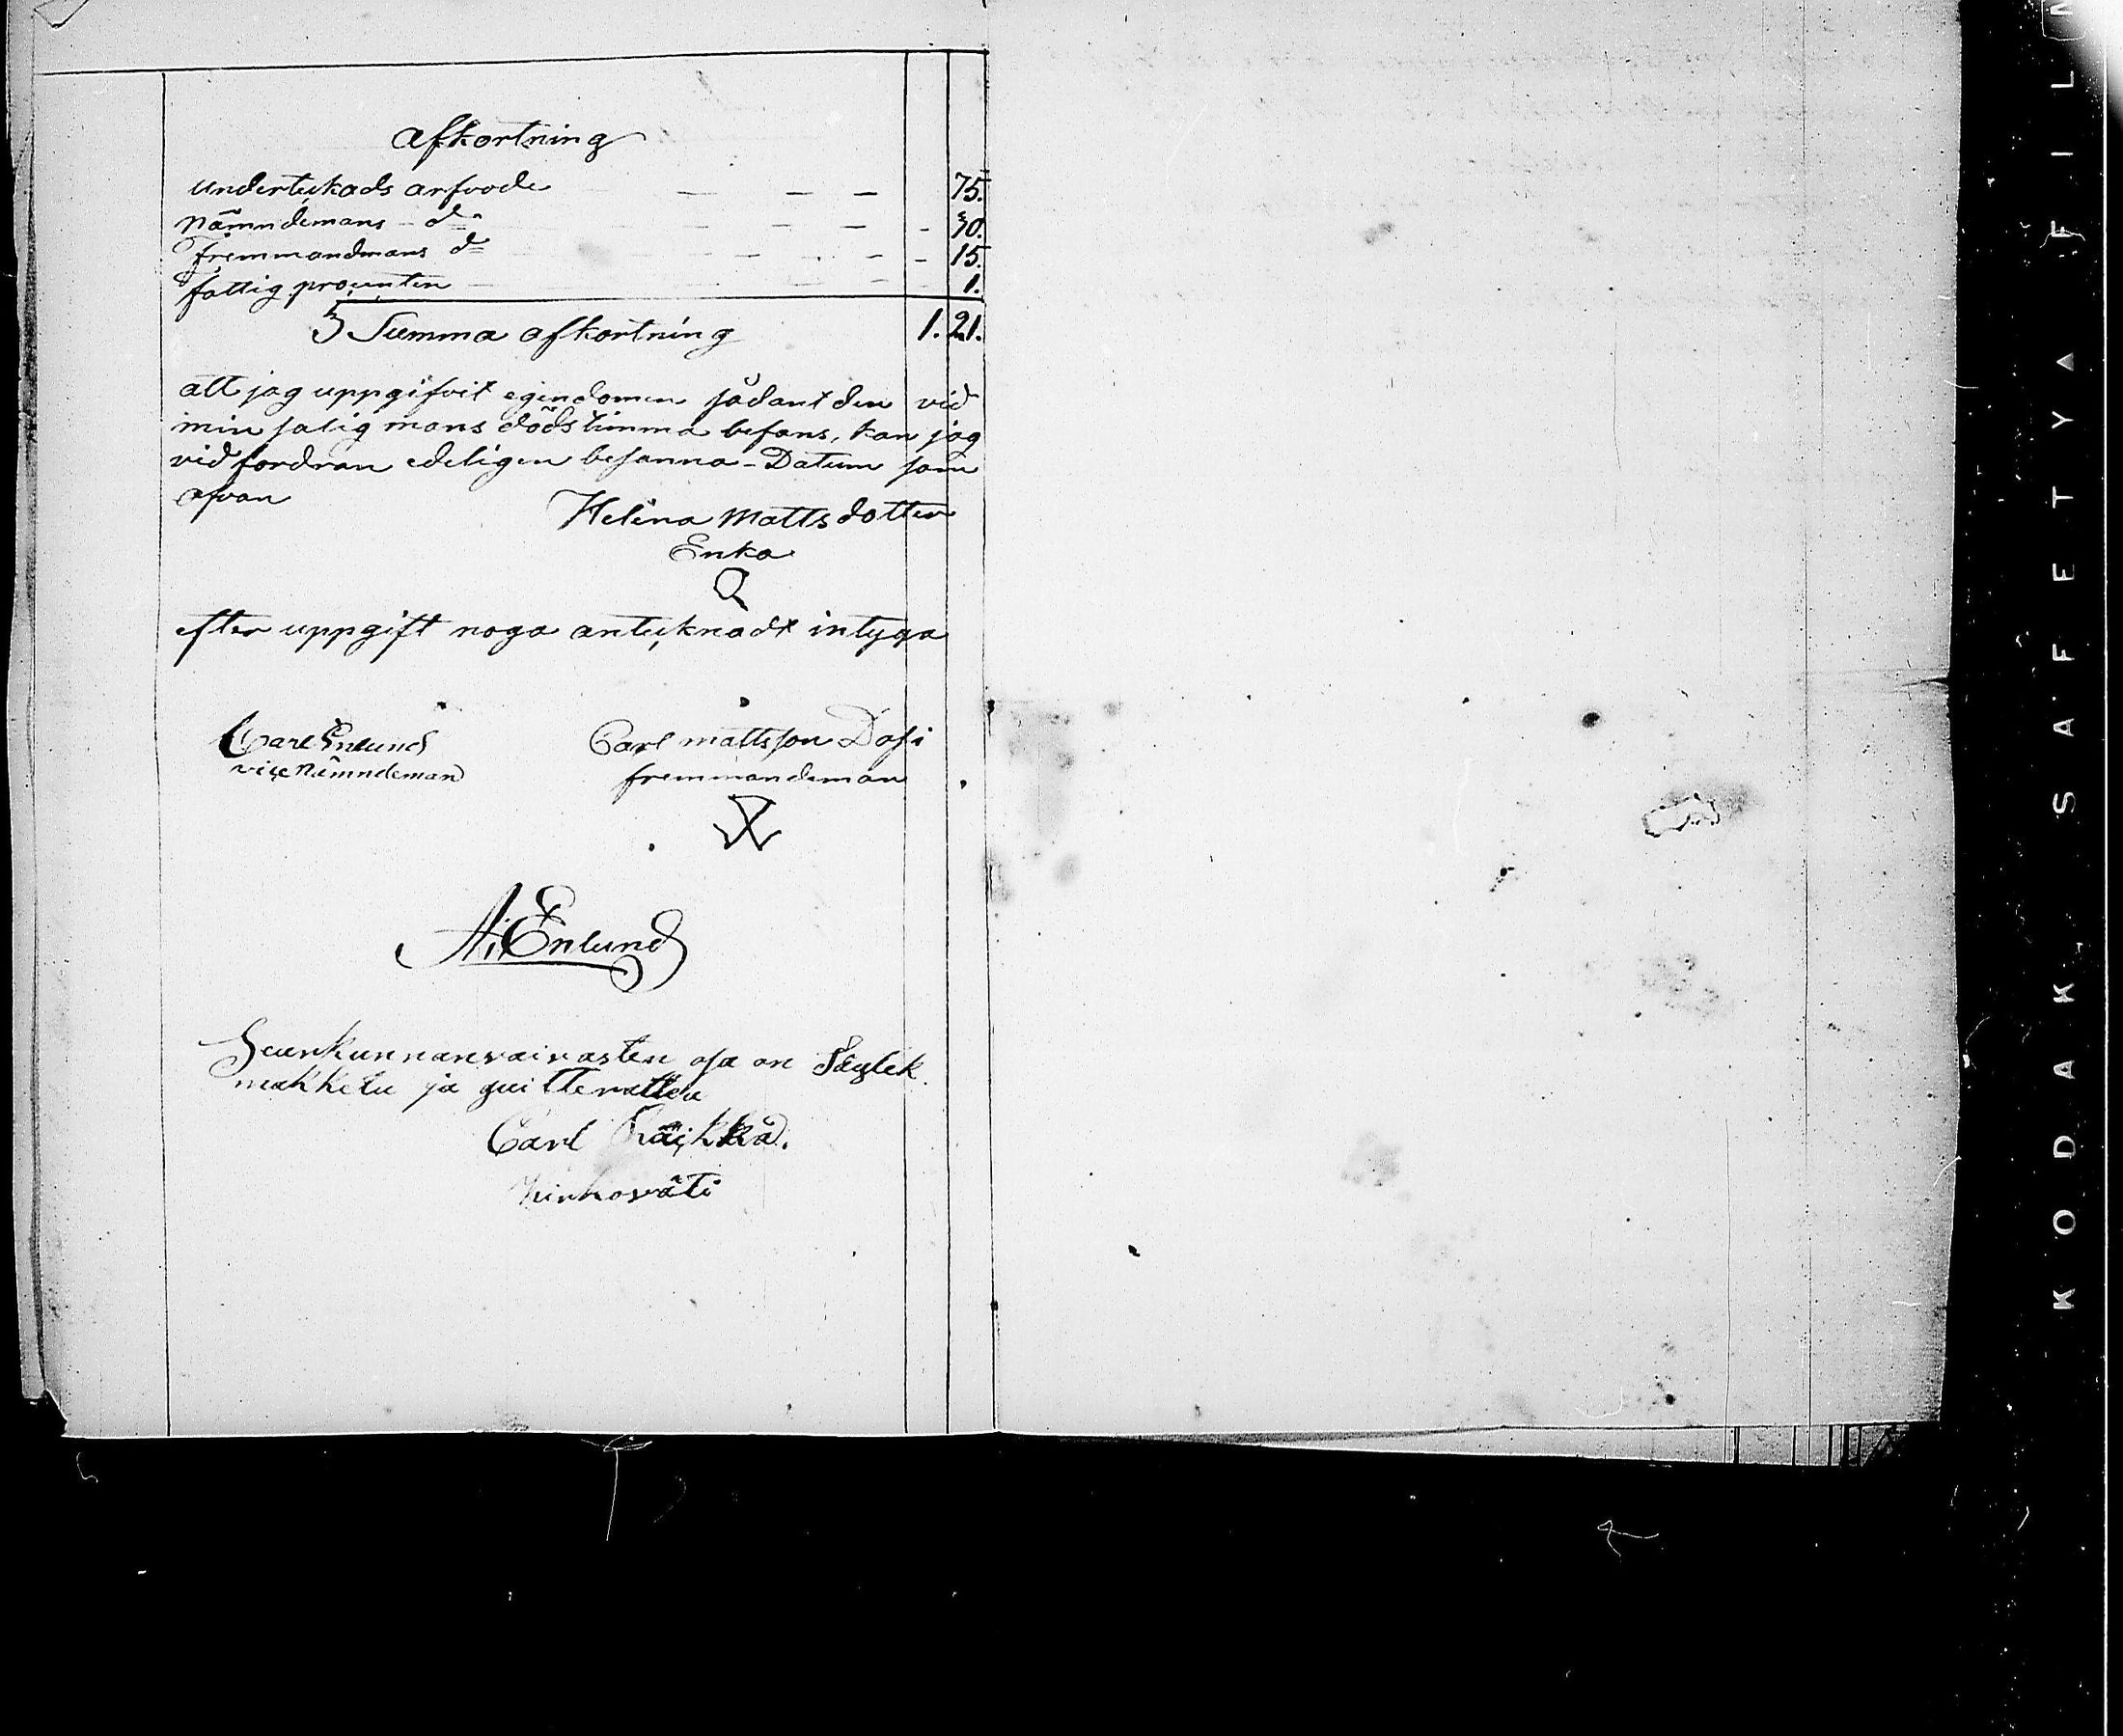 Afkortning
undertecknads arfvode — — — 75.
Nämndemans — do — — - 30.
Fremmandmans do — — - 15.
fattig procenten — — 1.
Summa afkortning 1. 21.
att jag uppgifvit egendomen sådant den vid
min salig mans dödstimma befans, kan jag
vid fordran edeligen besanna - Datum som
ofvan
Helena Mattsdotter
Enka
efter uppgift noga anteknadt intyga
Carl Enlund Carl Mattsson Dosi
vice Nämndeman fremmandeman
A. Enlund
Seurkunnanvaivasten osa on
makketu ja quitterattu
Carl
Kirkoväti
KODAK SAFETY A FILM